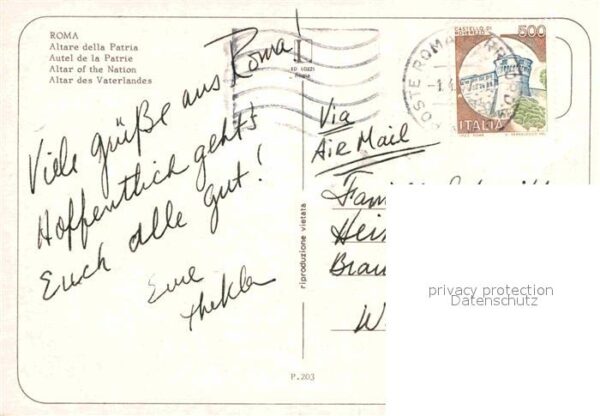 ROMA
Altare della Patria
Autel de la Patrie
Altar of the Nation
Altar des Vaterlandes
Viele Grüße aus Roma!
Hoffentlich geht's
Euch alle gut!
Eure
Thekla
ED LOZZI
ROMA
riproduzione vietata
P.203
POSTE ROMA
CASTELLO DI
ROVERETO
500
ITALIA
Via
Air Mail
Fam
Hei
Brau
W
privacy protection
Datenschutz